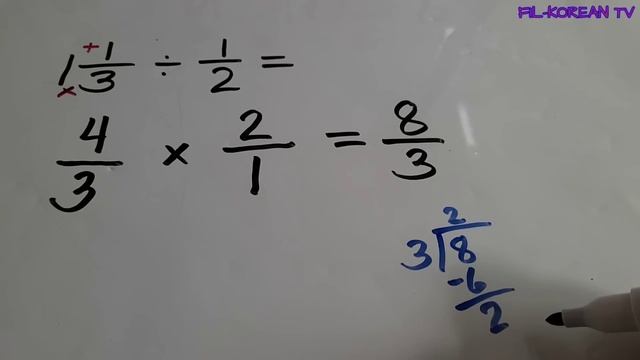 FIL-KOREAN TV
1 1/3 ÷ 1/2 =
+
×
4/3 × 2/1 = 8/3
2
3 8
-6
2